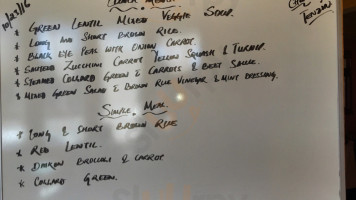 10/23/16
Lunch Menu
* Green Lentil Mixed Veggie Soup.
* Long and Short Brown Rice.
* Black Eye Peas with Onion Carrot.
* Sauteed Zucchini Carrot Yellow Squash & Turnip.
* Steamed Collard Green & Carrots & Beet Sauce.
* Mixed Green Salad & Brown Rice Vinegar & Mint Dressing.
Simple Meal
* Long & Short Brown Rice
* Red Lentil.
* Daikon Broccoli & Carrot
* Collard Green.